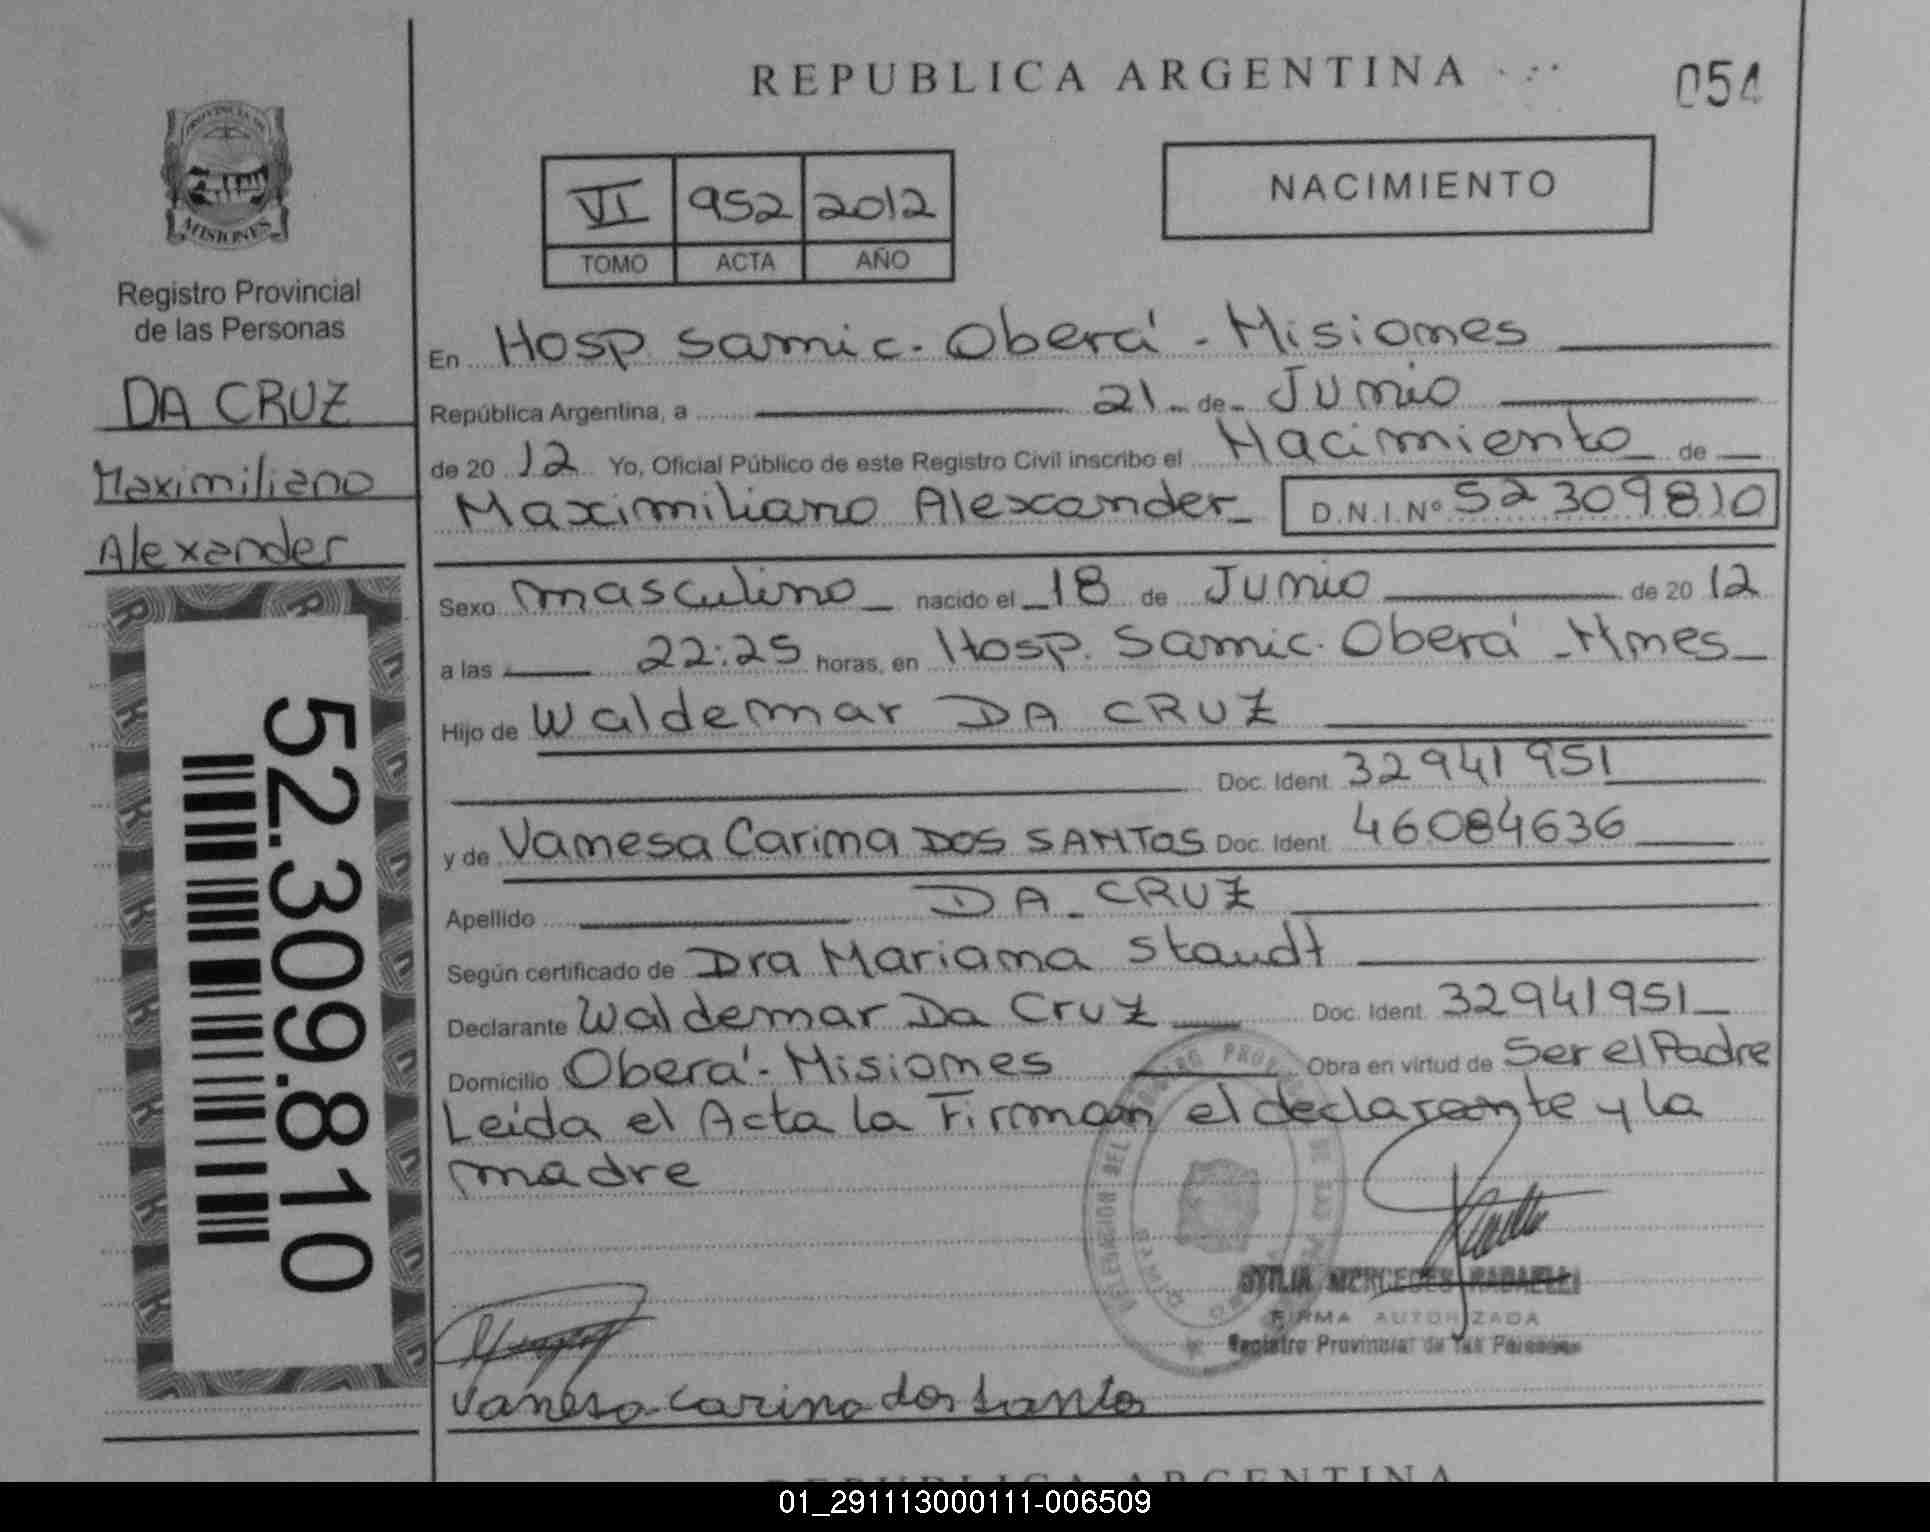 REPUBLICA ARGENTINA
054
PROVINCIA DE
MISIONES
Registro Provincial
de las Personas
DA CRUZ
Maximiliano
Alexander
52.309.810
VI 952 2012
TOMO ACTA AÑO
NACIMIENTO
En Hosp. Samic. Oberá - Misiones
República Argentina, a 21 de Junio
de 20 12 Yo, Oficial Público de este Registro Civil inscribo el Nacimiento de
Maximiliano Alexander D.N.I.Nº 52309810
Sexo masculino nacido el 18 de Junio de 20 12
a las 22:25 horas, en Hosp. Samic. Oberá - Mnes
Hijo de Waldemar DA CRUZ
Doc. Ident. 32941951
y de Vanesa Carina DOS SANTOS Doc. Ident. 46084636
Apellido DA CRUZ
Según certificado de Dra Mariana Staudt
Declarante Waldemar Da Cruz Doc. Ident. 32941951
Domicilio Oberá - Misiones Obra en virtud de Ser el Padre
Leida el Acta la Firman el declarante y la
madre
MERCEDES RADAELLI
FIRMA AUTORIZADA
Registro Provincial de las Personas
Vanesa Carina dos Santos
REPUBLICA ARGENTINA
01_291113000111-006509